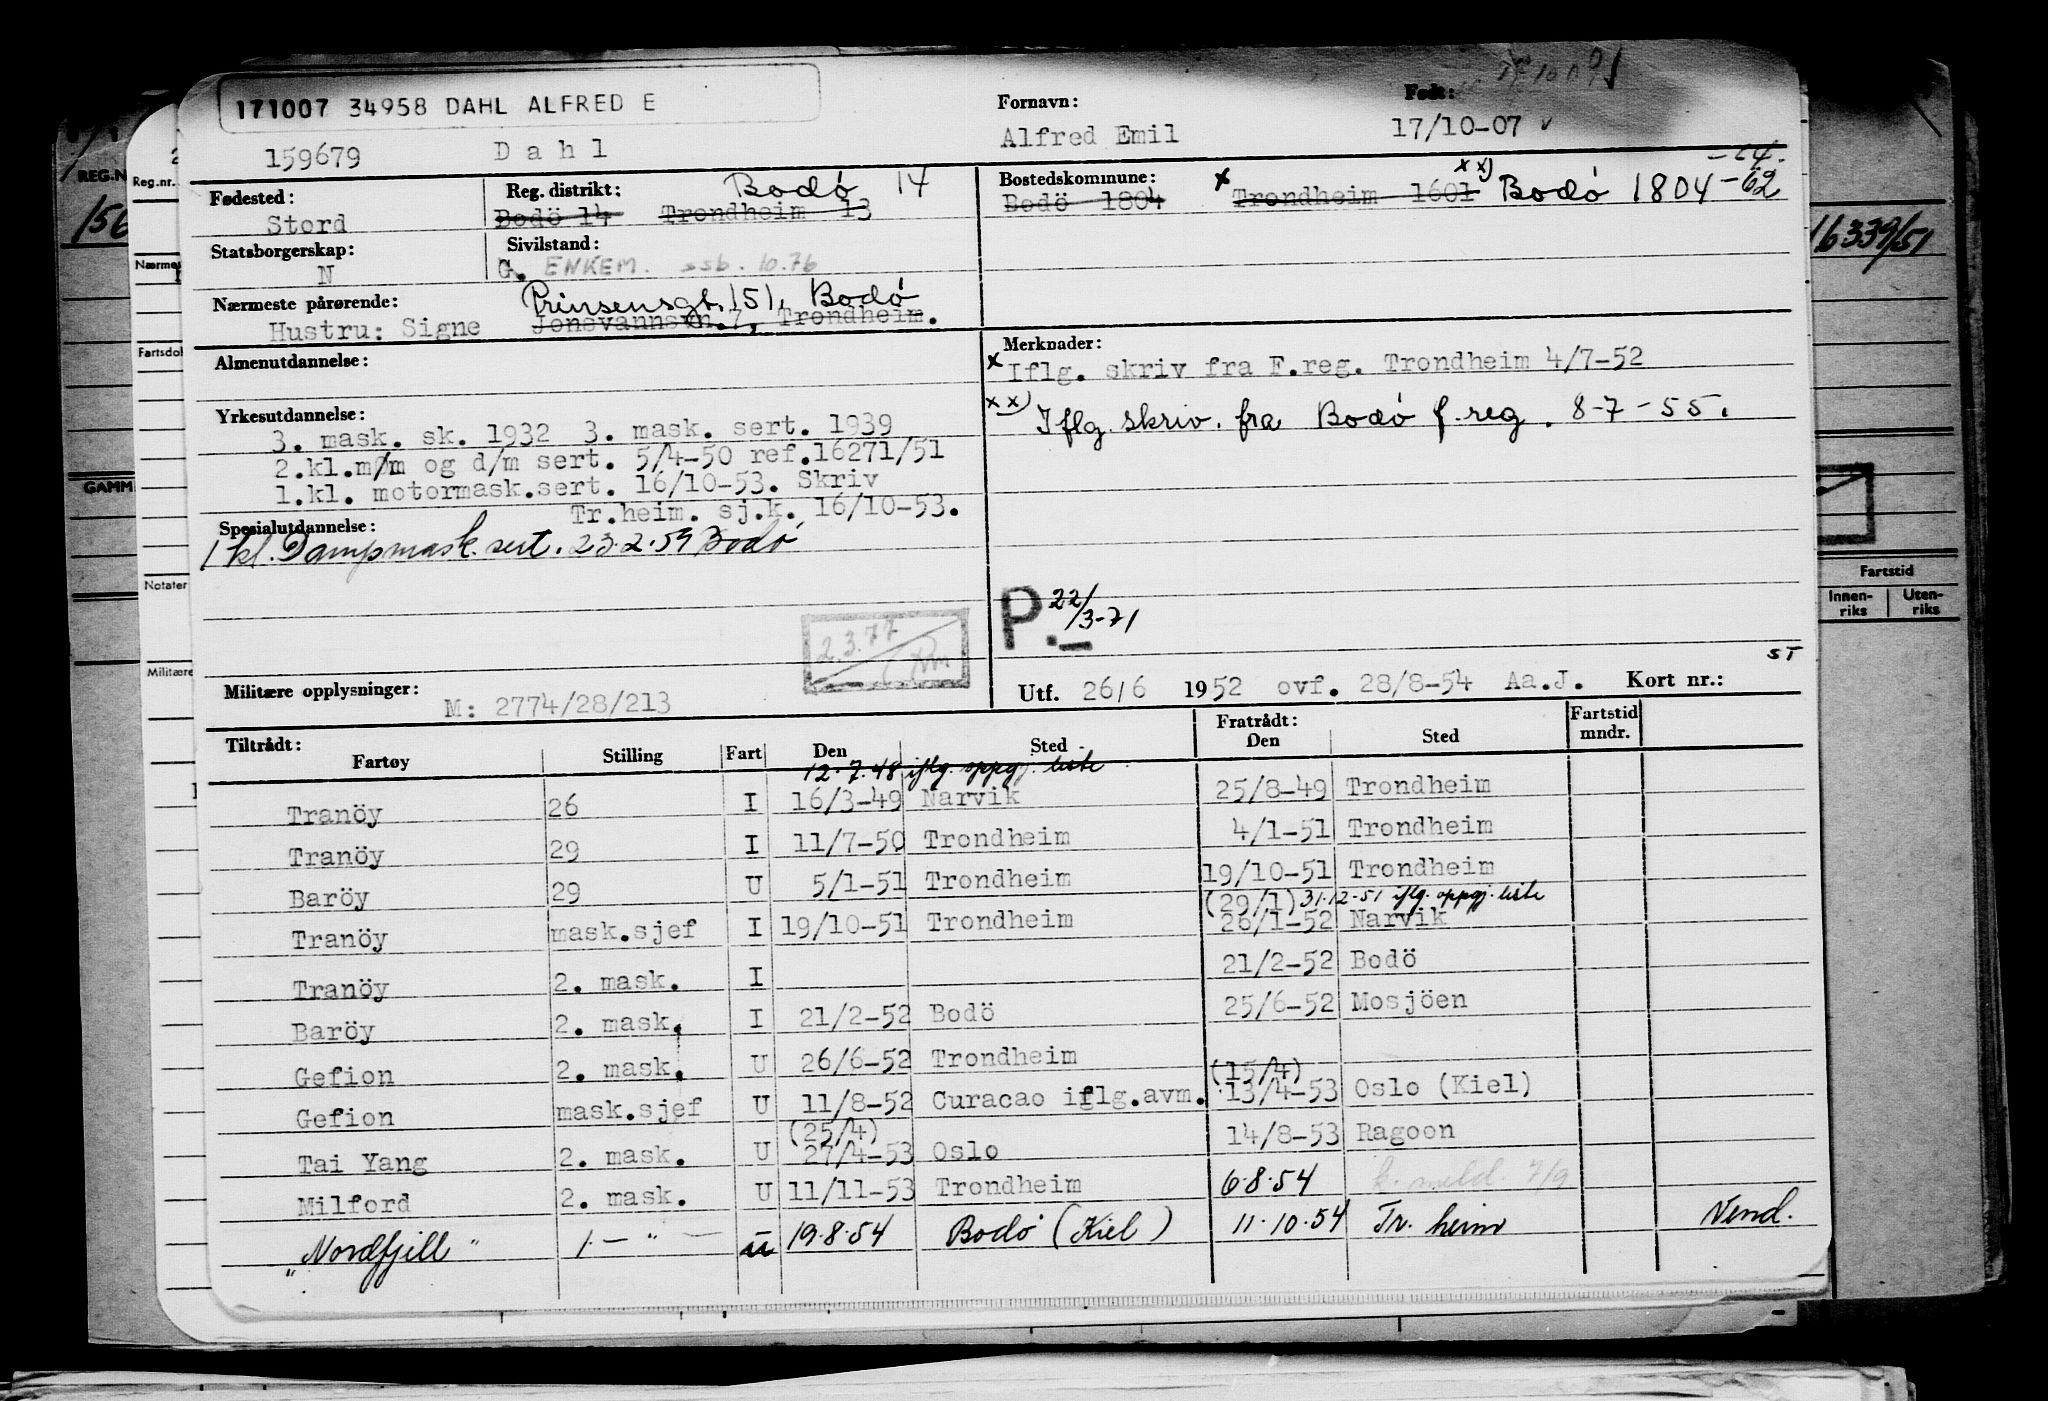 171007 34958 DAHL ALFRED E
159679 Dahl
Fornavn: Alfred Emil
Født: 17/10-07
Fødested: Stord
Reg. distrikt: Bodö 14 Trondheim 13 Bodø 14
Bostedskommune: Bodö 1804 x Trondheim 1601 xx) Bodø 1804 -62 -64.
Statsborgerskap: N
Sivilstand: G. ENKEM. ssb. 10.76
Nærmeste pårørende: Prinsensgt. 151, Bodø
Hustru: Signe Jonsvannsvn.7, Trondheim.
Almenutdannelse:
Merknader:
x Iflg. skriv fra F.reg. Trondheim 4/7-52
xx) Iflg. skriv. fra Bodø f.reg. 8-7-55.
Yrkesutdannelse:
3. mask. sk. 1932 3. mask. sert. 1939
2.kl.m/m og d/m sert. 5/4-50 ref.16271/51
1.kl. motormask.sert. 16/10-53. Skriv
Tr.heim. sj.k. 16/10-53.
Spesialutdannelse:
1 kl. Dampmask. sert. 23.2.59 Bodø
P.- 22/3-71
2.3.77
Militære opplysninger: M: 2774/28/213
ST
Utf. 26/6 1952 ovf. 28/8-54 Aa.J. Kort nr.:
Tiltrådt: Fratrådt:
Fartøy Stilling Fart Den Sted Den Sted Fartstid mndr.
12.7.48 iflg. oppgj. liste
Tranöy 26 I 16/3-49 Narvik 25/8-49 Trondheim
Tranöy 29 I 11/7-50 Trondheim 4/1-51 Trondheim
Baröy 29 U 5/1-51 Trondheim 19/10-51 Trondheim
(29/1) 31.12.51 iflg. oppgj. liste
Tranöy mask.sjef I 19/10-51 Trondheim 26/1-52 Narvik
Tranöy 2. mask. I 21/2-52 Bodö
Baröy 2. mask. I 21/2-52 Bodö 25/6-52 Mosjöen
Gefion 2. mask. U 26/6-52 Trondheim
(15/4)
Gefion mask.sjef U 11/8-52 Curacao iflg.avm. 13/4-53 Oslo (Kiel)
(25/4)
Tai Yang 2. mask. U 27/4-53 Oslo 14/8-53 Ragoon
Milford 2. mask. U 11/11-53 Trondheim 6.8.54 k. meld. 7/9
"Nordfjell" 1. — " — U 19.8.54 Bodø (Kiel) 11.10.54 Tr. heim Vend.
REG.N
156
GAMM
Reg.nr.
Nærmes
Fartsdok
Notater
Militære
16339/51
Fartstid
Innen-riks
Uten-riks